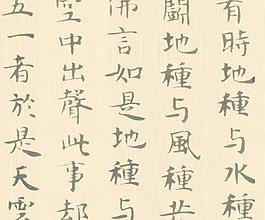 有時地種与水種
闘地種与風種
佛言如是地種与
空中出聲此事都
五一者於是天雲